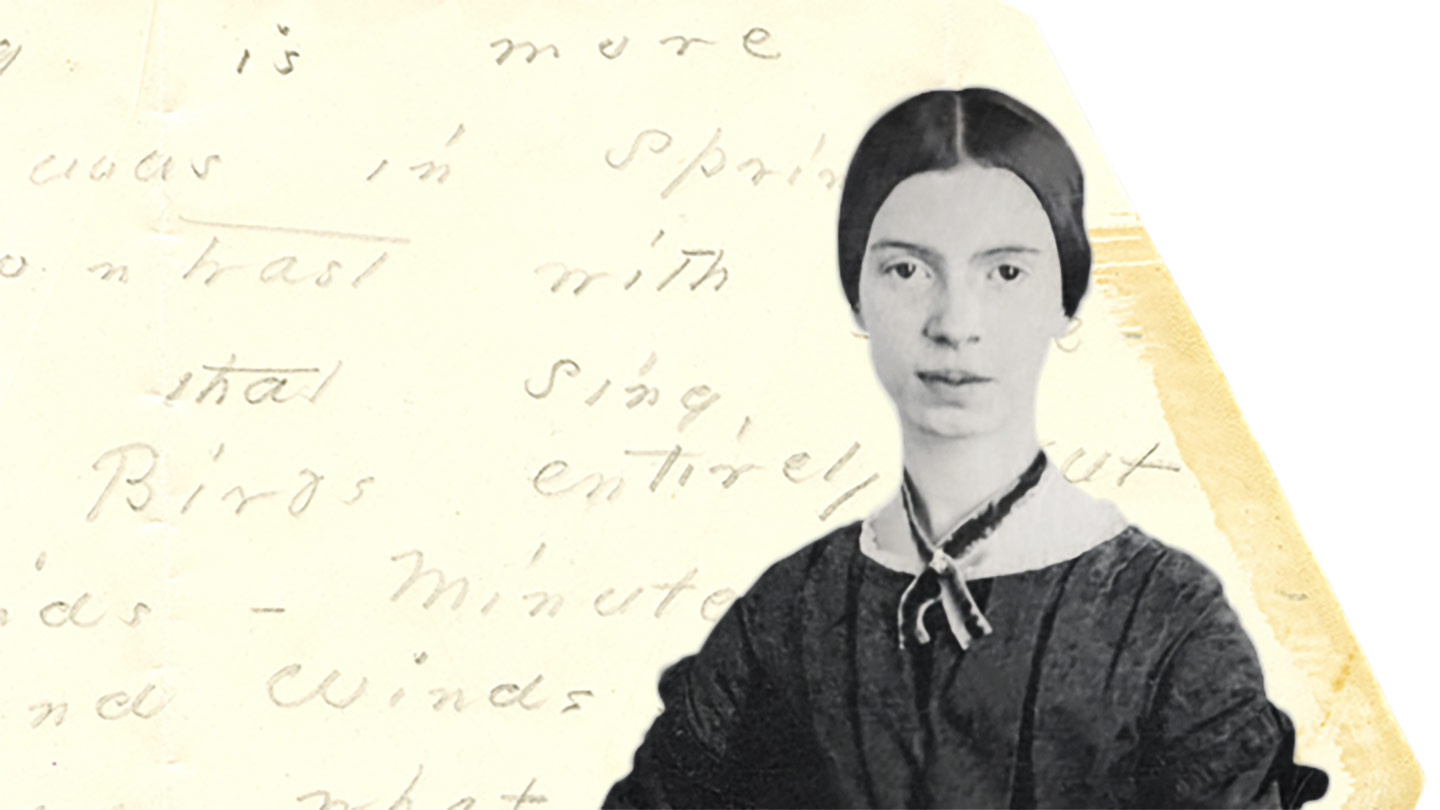 is more
in Sprin
ontrast with
that Sing,
Birds entirely, but
ids - Minute
nd Winds
what